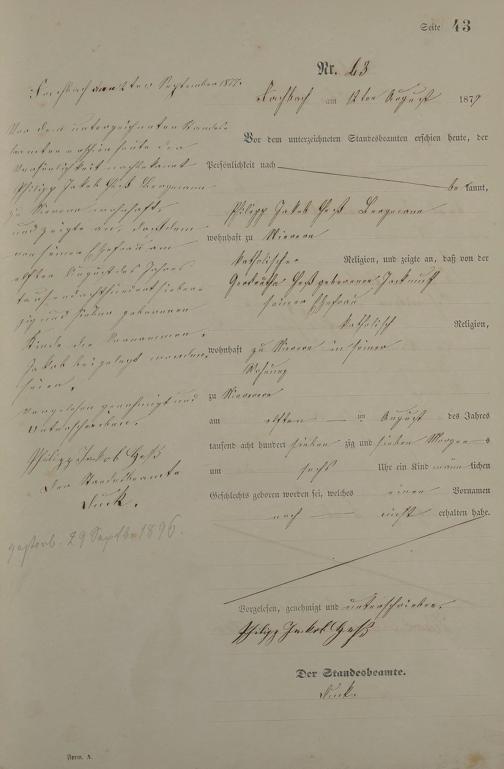 Seite 43
Nr. 43
am 12ten August 1877
Vor dem unterzeichneten Standesbeamten erschien heute, der
Persönlichkeit nach
be kannt,
Philipp Jakob Heß Bergmann
wohnhaft zu
katholischer Religion, und zeigte an, daß von der
Heß geborenen
seiner Ehefrau
katholisch Religion,
wohnhaft zu in seiner
Wohnung
zu
am elften im August des Jahres
tausend acht hundert sieben zig und sieben Morgens
um sechs Uhr ein Kind männlichen
Geschlechts geboren worden sei, welches einen Vornamen
noch nicht erhalten habe.
Vorgelesen, genehmigt und unterschrieben.
Philipp Jackob Heß
Der Standesbeamte.
September 1877.
Vor dem unterzeichneten Standes-
beamten erschien heute der
Persönlichkeit nach bekannt
Philipp Jakob Heß Bergmann
zu wohnhaft
und zeigte an, daß dem
von seiner Ehefrau am
elften August des Jahres
tausendachthundertsieben-
zig und sieben geborenen
Kinde die Vornamen
Jakob beigelegt worden
seien.
Vorgelesen genehmigt und
unterschrieben.
Philipp Jackob Hess
Der Standesbeamte
gestorb. 29 Septbr 1896.
Form. A.